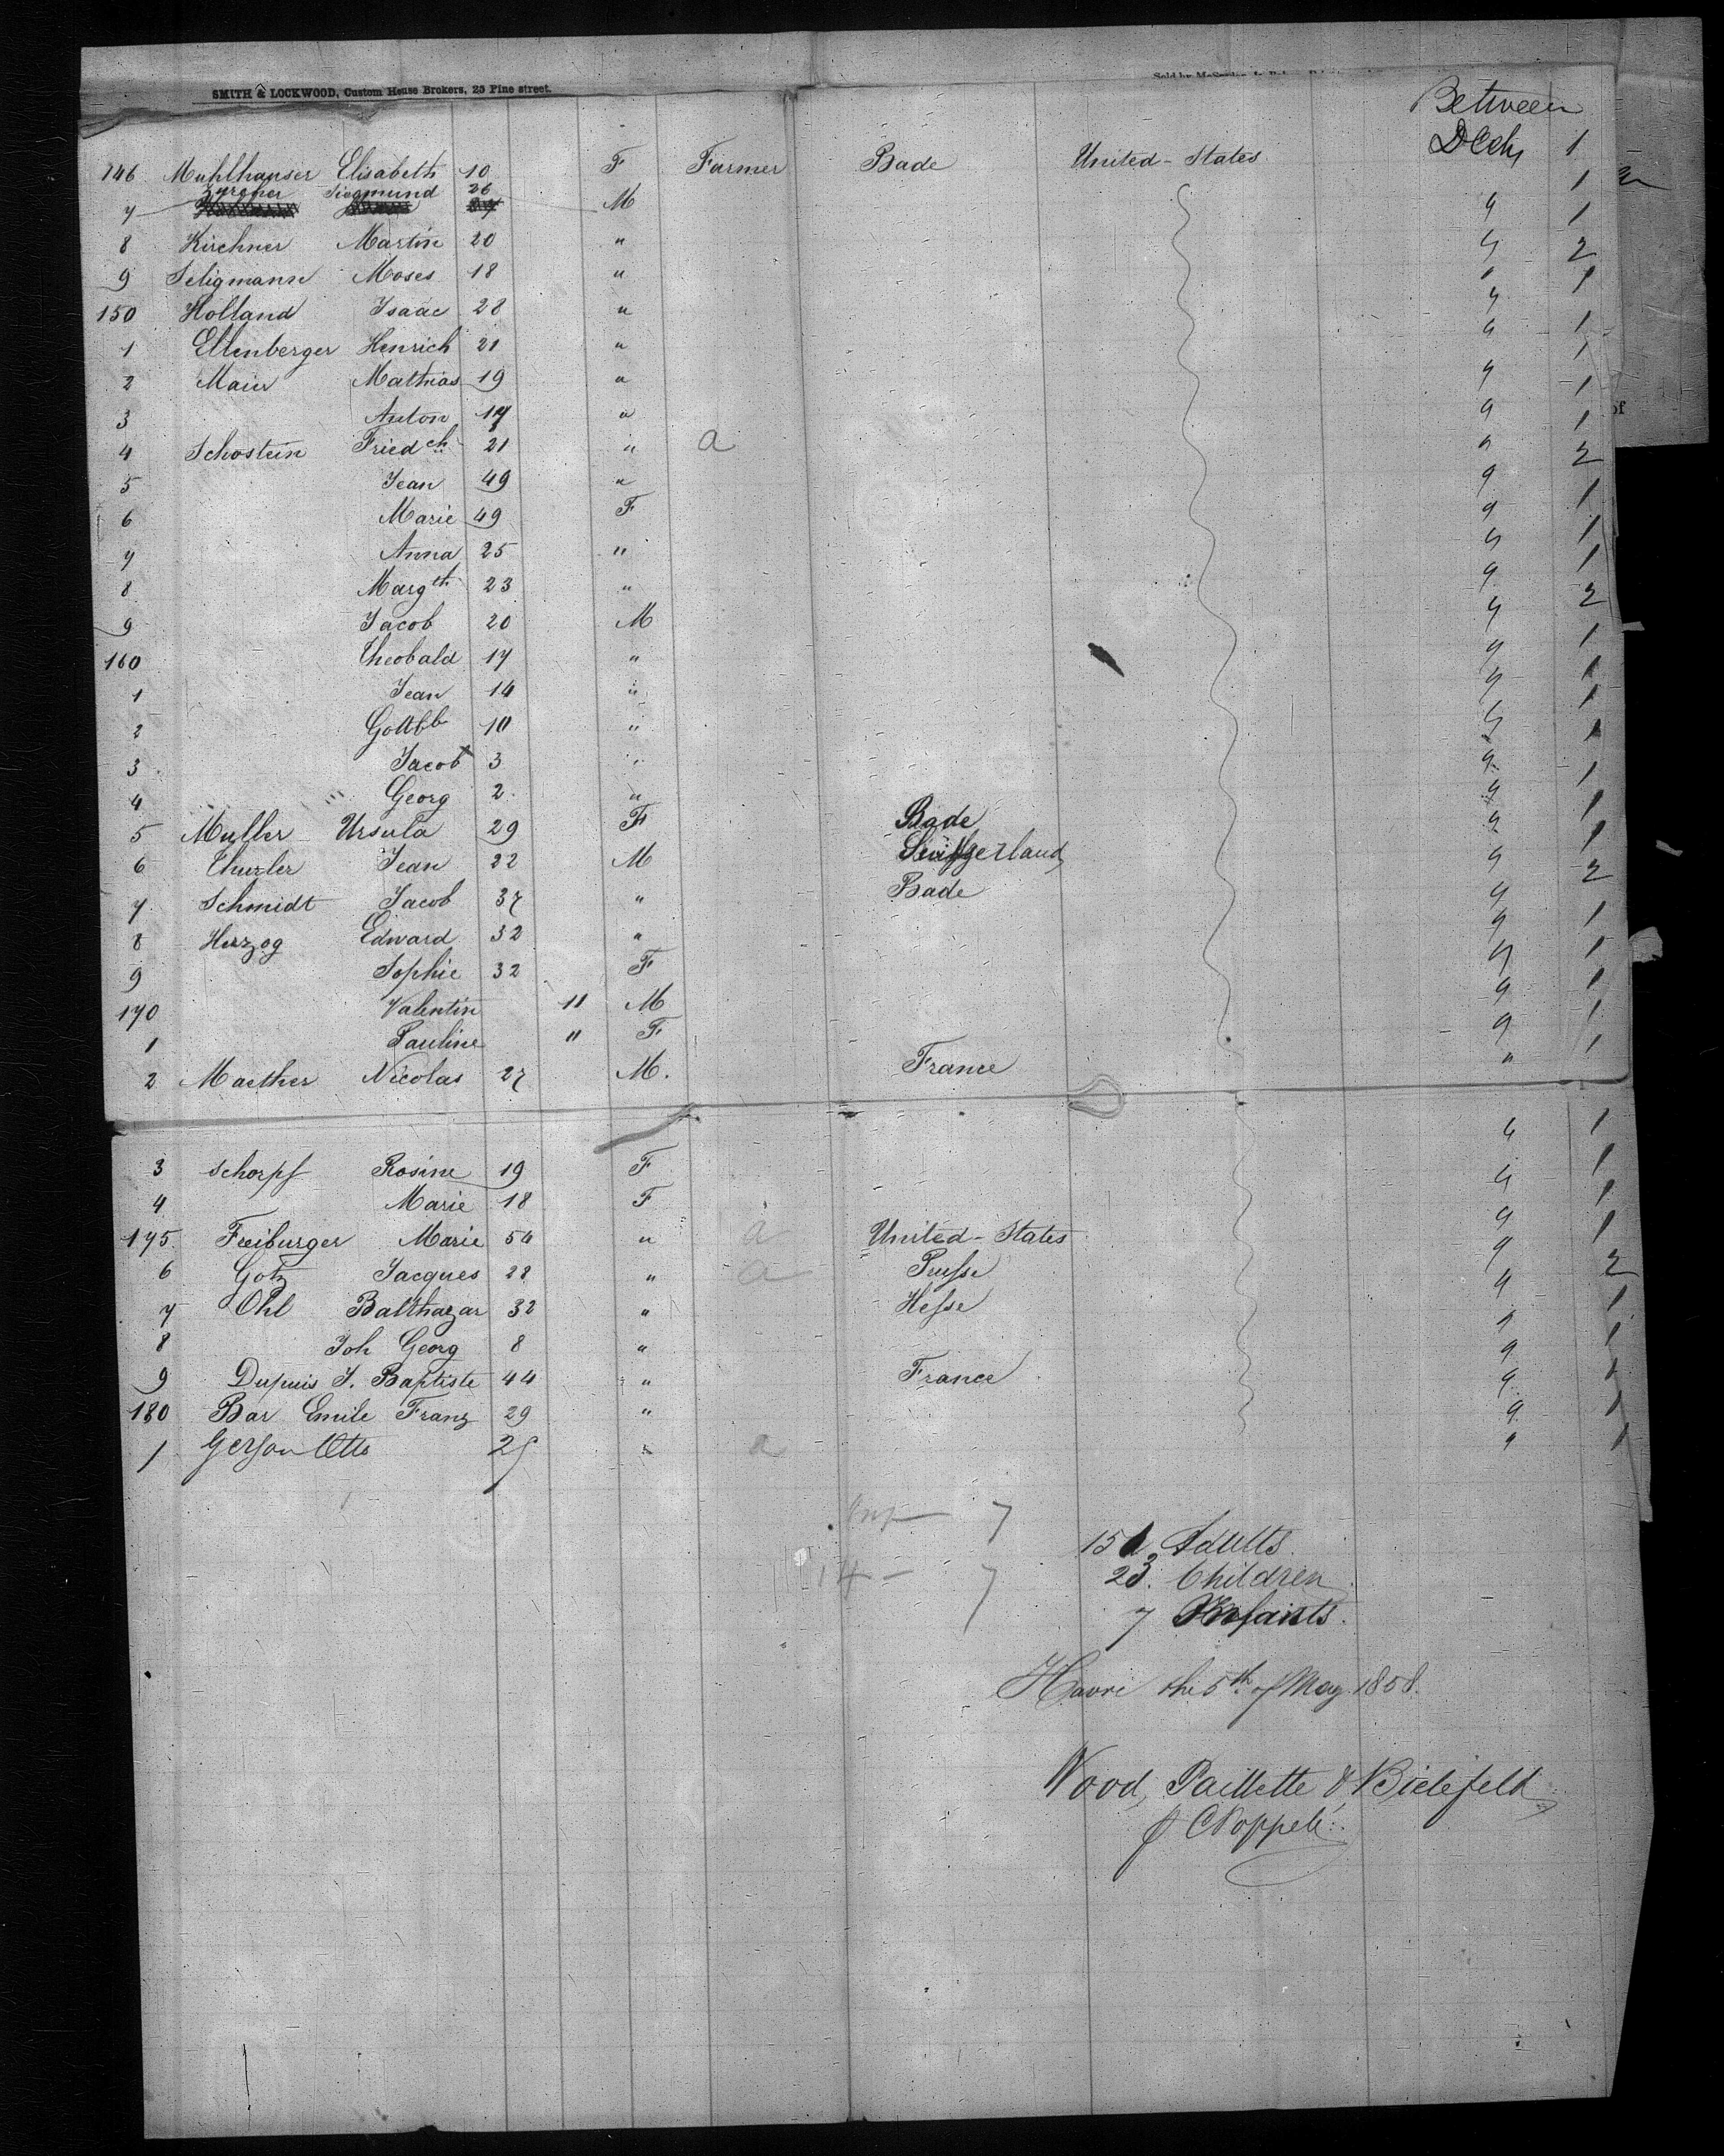 SMITH & LOCKWOOD, Custom House Brokers, 25 Pine street.
Between
146 Muhlhauser Elisabeth 10 F Farmer Bade United-States Deck 1
7 Zurcher Siegmund 26 M " 1
8 Kirchner Martin 20 " " 1
9 Seligmann Moses 18 " " 2
150 Holland Isaac 28 " " 1
1 Ellenberger Henrich 21 " " 1
2 Maier Mathias 19 " " 1
3 Anton 17 " " 1
4 Schostein Friedch 21 " a " 1
5 Jean 49 " " 2
6 Marie 49 F " 1
7 Anna 25 " " 1
8 Margth 23 " " 1
9 Jacob 20 M " 2
160 Theobald 17 " " 1
1 Jean 14 " " 1
2 Gottbb 10 " " 1
3 Jacob 3 " " 1
4 Georg 2 " " 1
5 Muller Ursula 29 F Bade " 1
6 Jean 22 M Switzerland " 1
7 Schmidt Jacob 37 " Bade " 2
8 Herzog Edward 32 " " 1
9 Sophie 32 F " 1
170 Valentin 11 M " 1
1 Pauline " F " 1
2 Maether Nicolas 27 M. France " 1
3 Schorpf Rosine 19 F " 1
4 Marie 18 F " 1
175 Freiburger Marie 54 " a United-States " 1
6 Gotz Jacques 28 " a Prusse " 1
7 Ohl Balthazar 32 " Hesse " 2
8 Joh Georg 8 " " 1
9 Dupuis J. Baptiste 44 " France " 1
180 Bar Emile Franz 29 " " 1
1 Gerson Otto 25 " a " 1
7
151 Adults
14 - 7
23. Children
7 Infants.
Havre the 5th of May 1858.
Wood, Paillette & Bielefeld